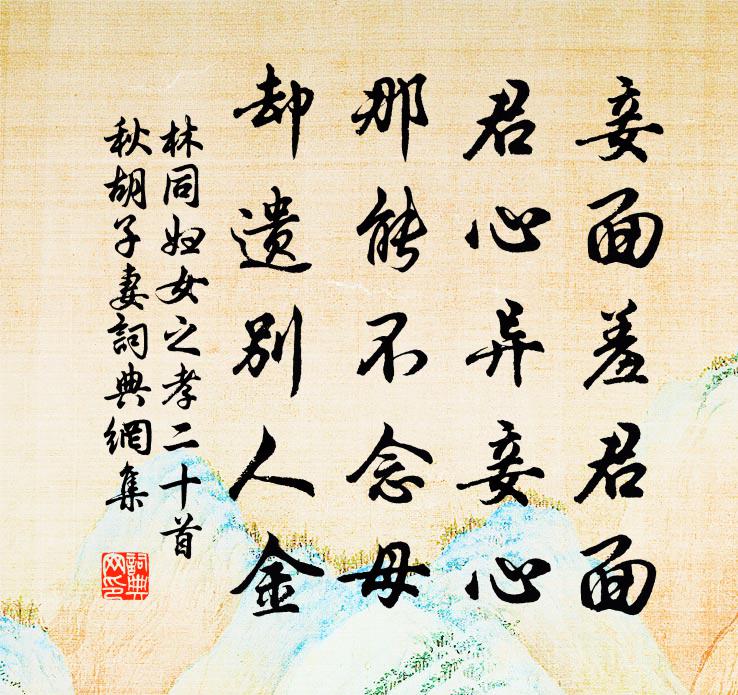 妾面羞君面
君心异妾心
那能不念母
却遗别人金
林同妇女之孝二十首
秋胡子妻詞典網集
詞典网印